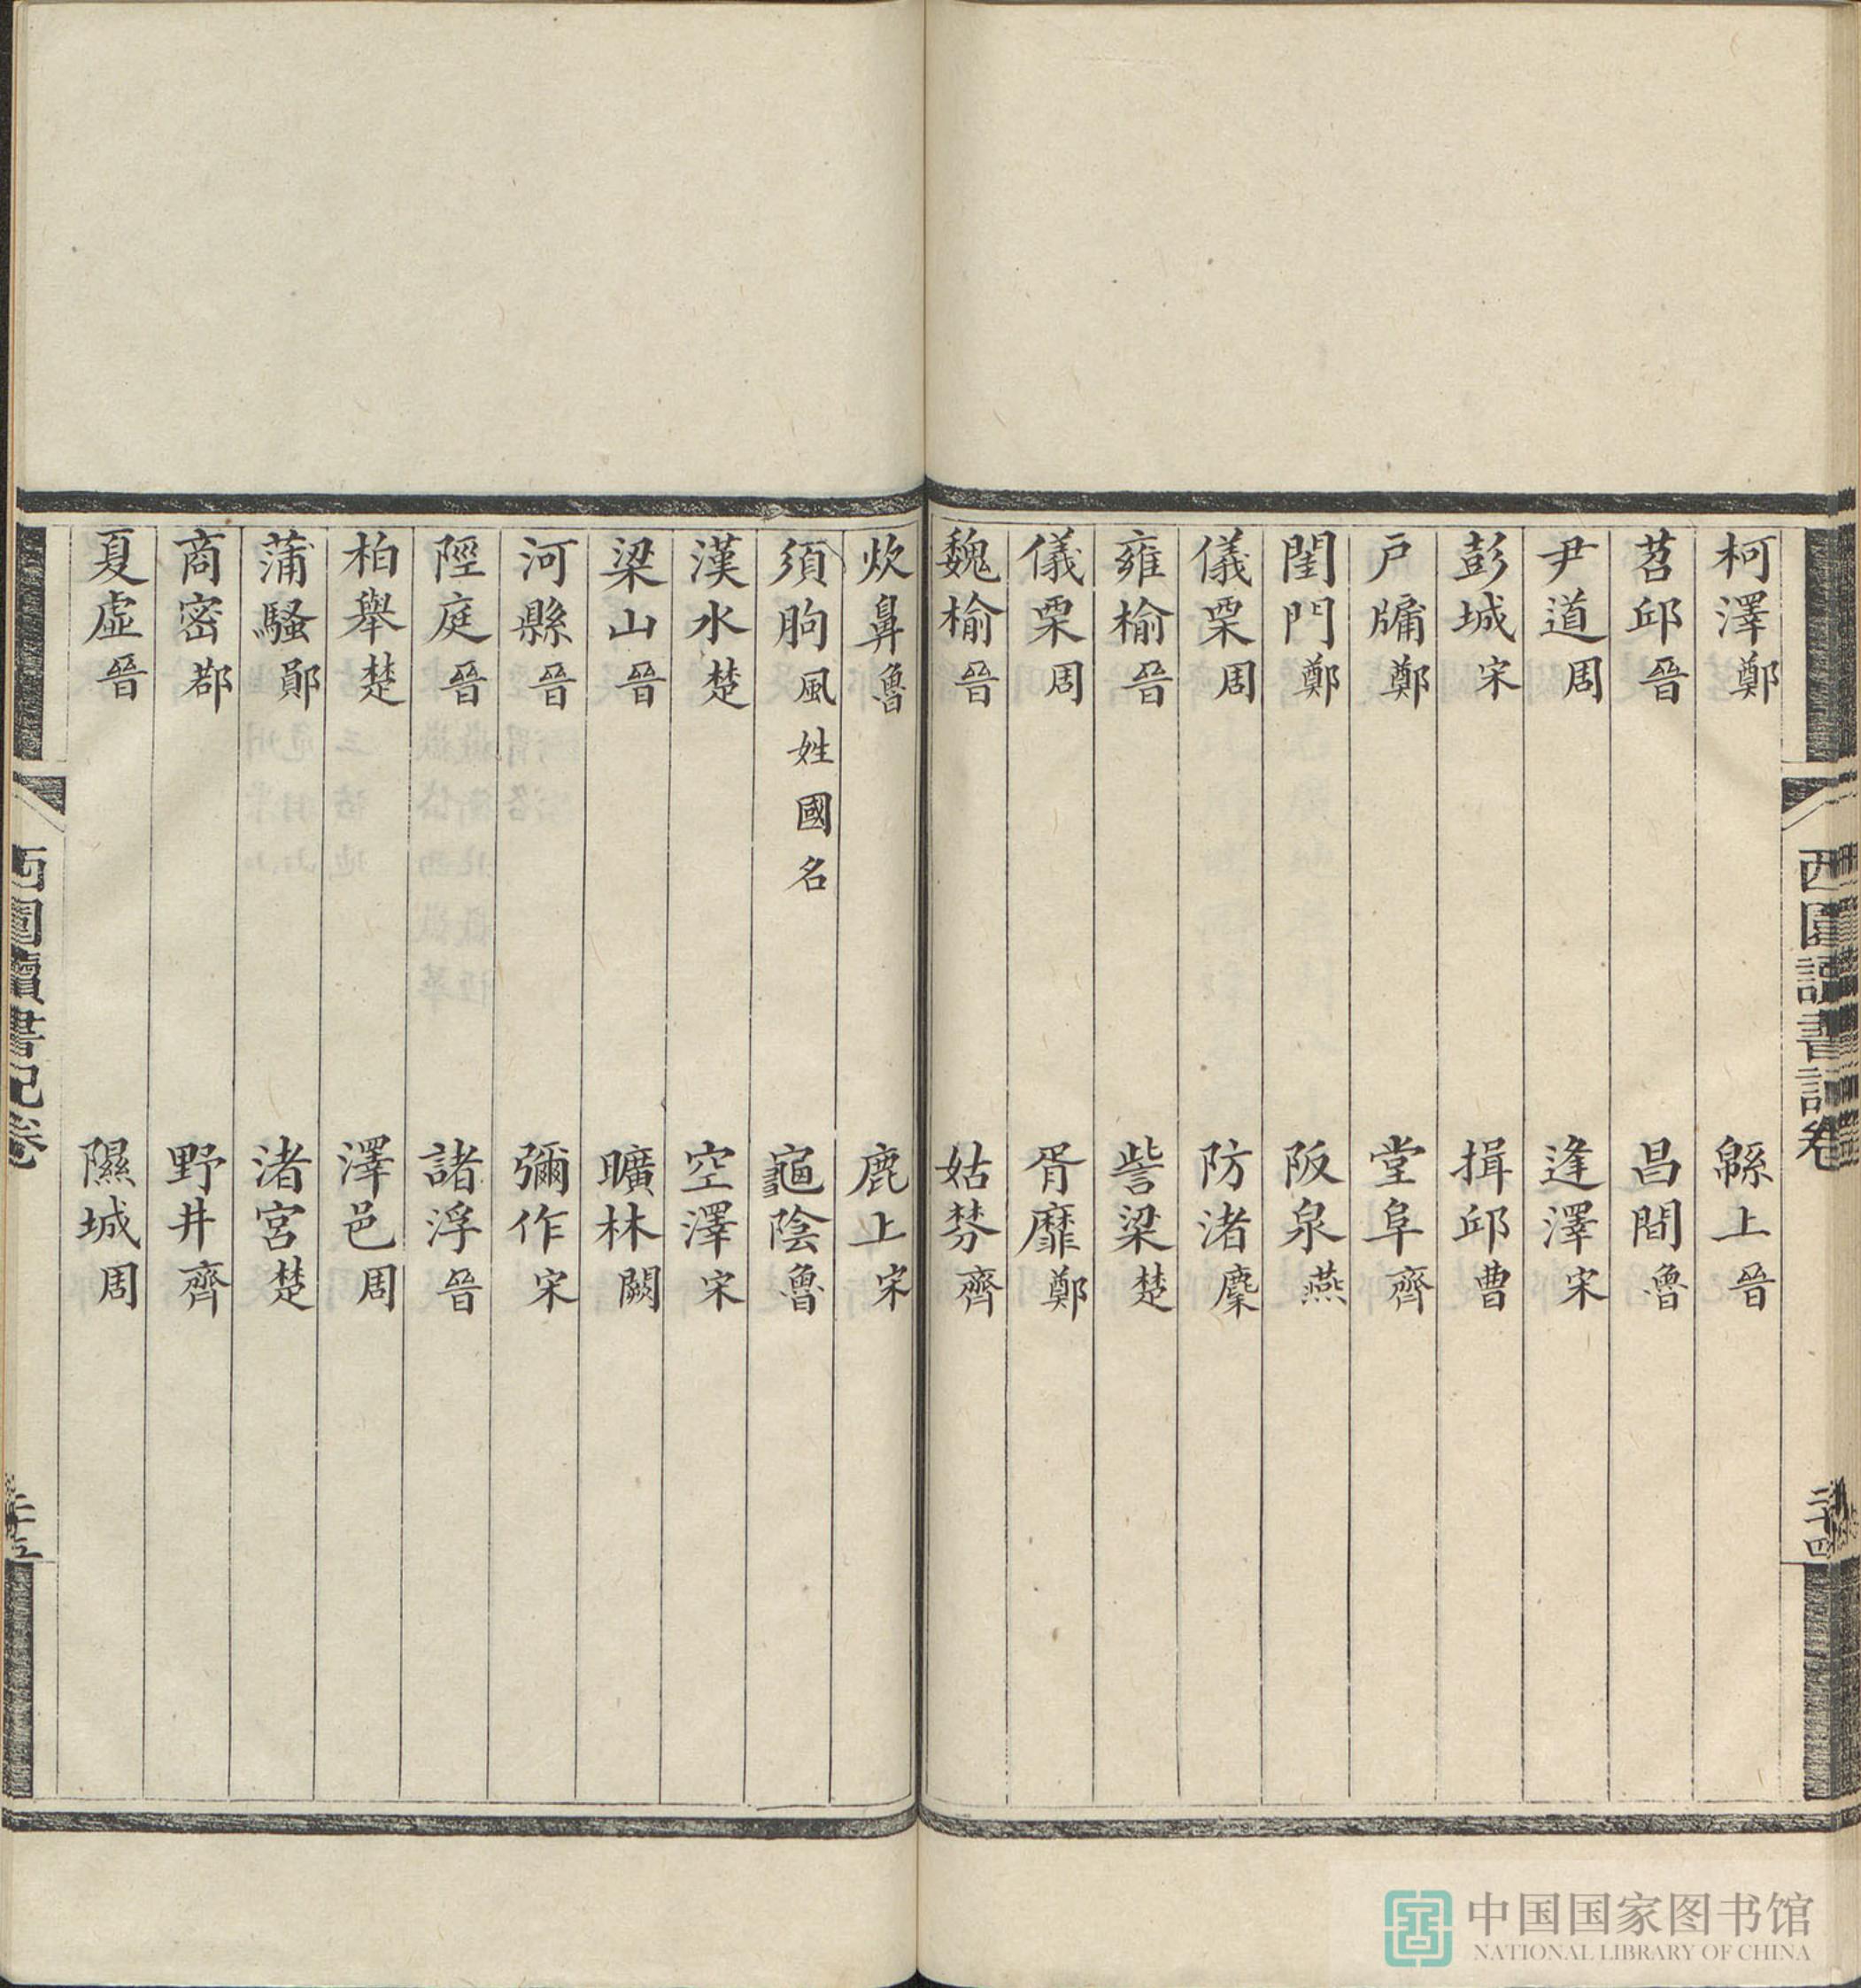 西園讀書記卷
二十四
柯澤鄭 緜上晉
苕邱晉 昌間魯
尹道周 逢澤宋
彭城宋 揖邱曹
戶牖鄭 堂阜齊
閨門鄭 阪泉燕
儀栗周 防渚麇
雍榆晉 訾梁楚
儀栗周 胥靡鄭
魏榆晉 姑棼齊
炊鼻魯 鹿上宋
須朐風姓國名 龜陰魯
漢水楚 空澤宋
梁山晉 曠林闕
河縣晉 彌作宋
陘庭晉 諸浮晉
柏舉楚 澤邑周
蒲騷鄖 渚宮楚
商密鄀 野井齊
夏虛晉 隰城周
西園讀書記卷
二十五
中国国家图书馆
NATIONAL LIBRARY OF CHINA